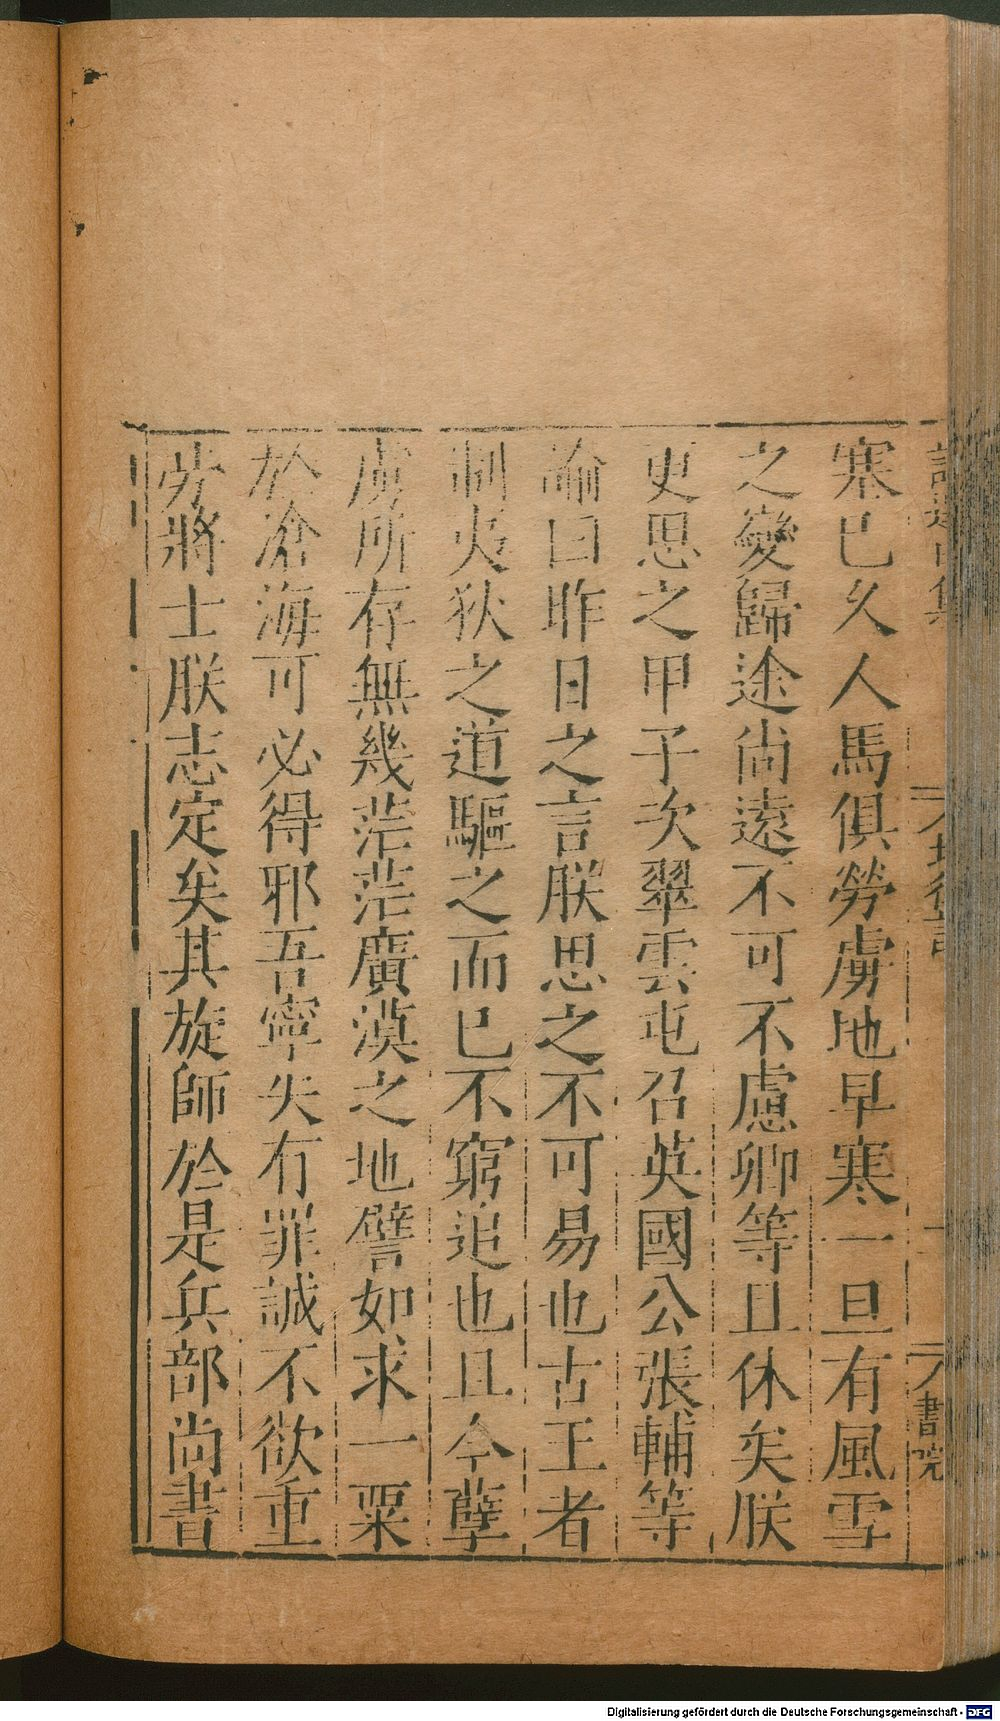 塞已久人馬俱勞虜地早寒一旦有風雪
之變歸途尚遠不可不慮卿等且休矣朕
更思之甲子次翠雲屯召英國公張輔等
諭曰昨日之言朕思之不可易也古王者
制夷狄之道驅之而已不窮追也且今孽
虜所存無幾茫茫廣漠之地譬如求一粟
於滄海可必得邪吾寧失有罪誠不欲重
勞將士朕志定矣其旋師於是兵部尚書
書院
Digitalisierung gefördert durch die Deutsche Forschungsgemeinschaft - DFG